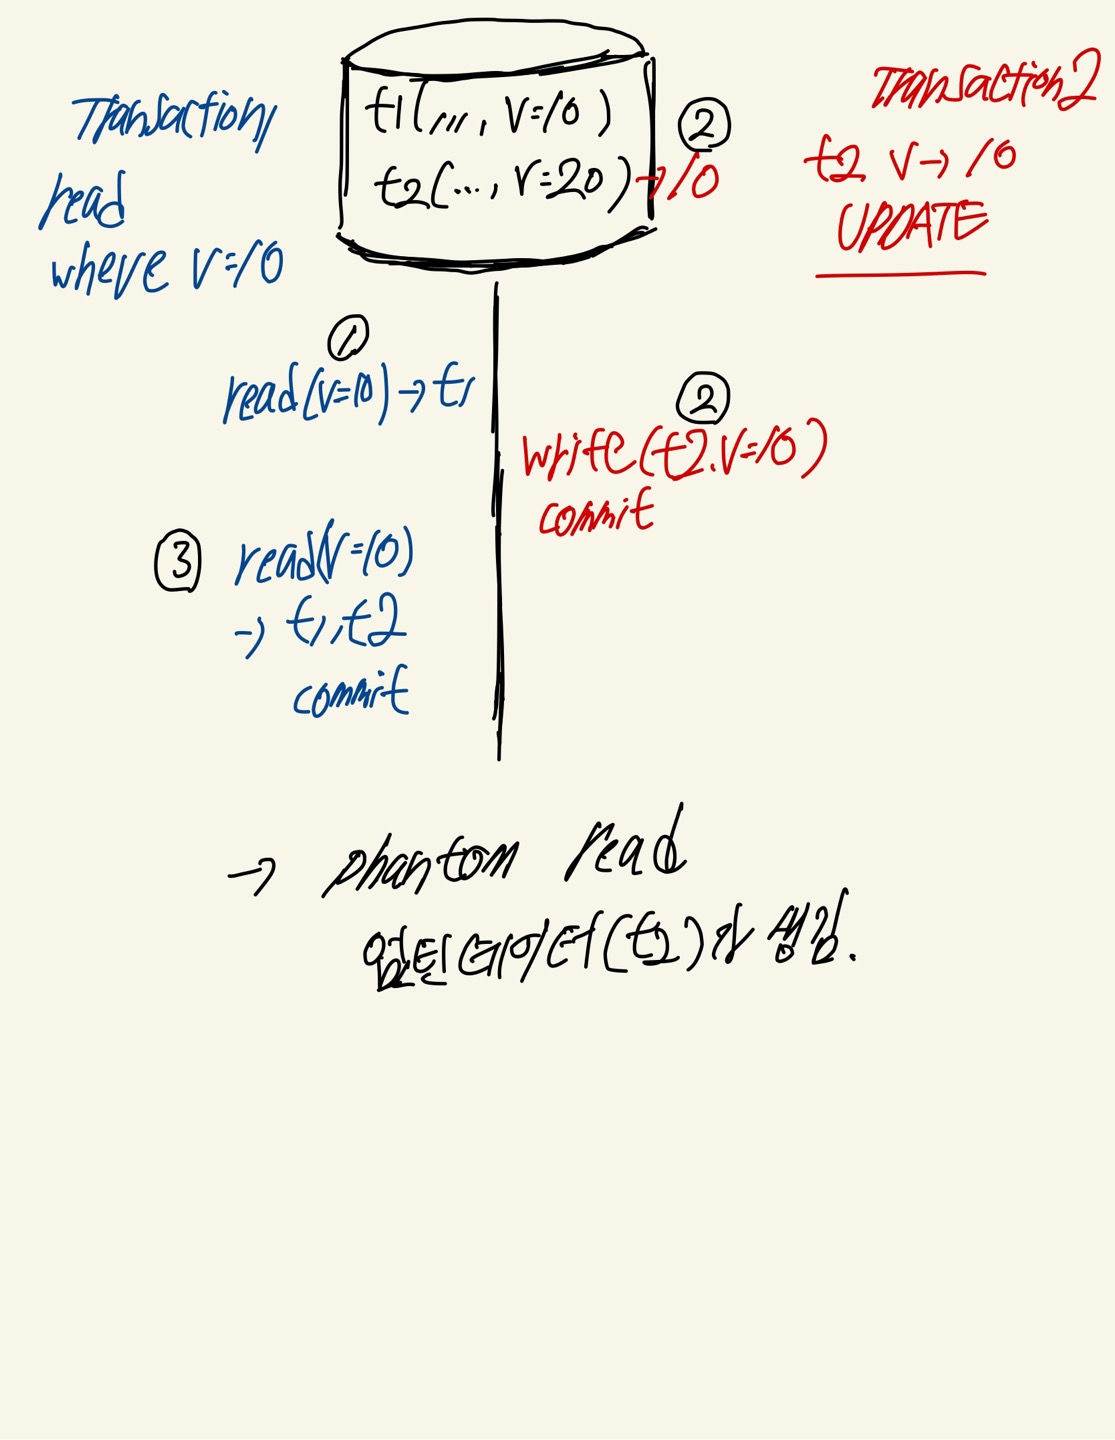 Transaction1
read
where v=10
t1(..., v=10)
t2(..., v=20) → 10
②
Transaction2
t2 v → 10
UPDATE
①
read(v=10) → t1
②
write(t2.v=10)
commit
③ read(v=10)
→ t1, t2
commit
→ phantom read
없던 데이터(t2)가 생김.